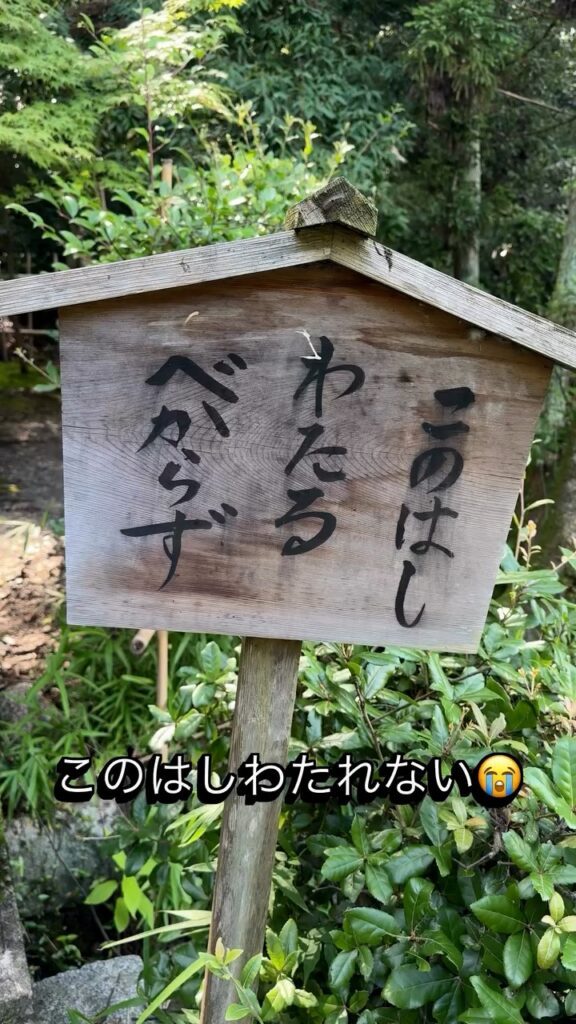 このはし
わたる
べからず
このはしわたれない😭